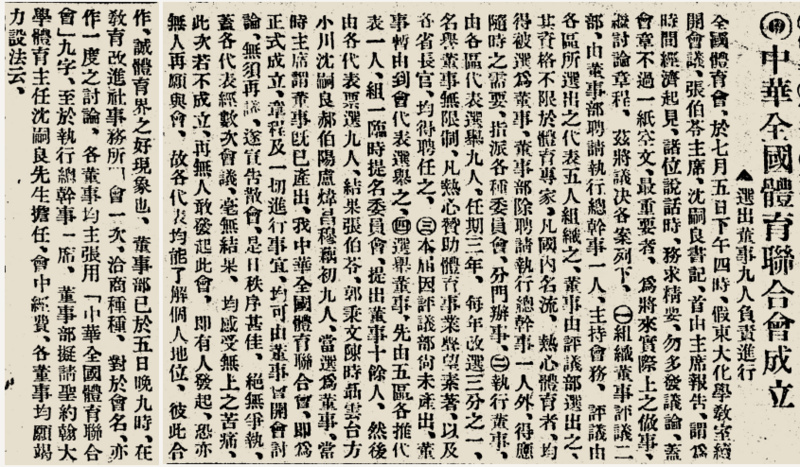 中華全國體育聯合會成立
▲選出董事九人負責進行
全國體育會、於七月五日下午四時、假東大化學教室續
開會議、張伯苓主席、沈嗣良書記、首由主席報告、謂爲
時間經濟起見、諸位說話時、務求精要、勿多發議論、蓋
會章不過一紙空文、最重要者、爲將來實際上之做事、
繼討論章程、茲將議決各案列下、㊀組織董事評議二
部、由董事部聘請執行總幹事一人、主持會務、評議由
各區所選出之代表五人組織之、董事由評議部選出之、
其資格不限於體育專家、凡國內名流、熱心體育者、均
得被選爲董事、董事部除聘請執行總幹事一人外、得應
隨時之需要、指派各種委員會、分門辦事、㊁執行董事、
由各區代表選舉九人、任期三年、每年改選三分之一、
名譽董事無限制、凡熱心贊助體育事業聲望素著、以及
各省長官、均得聘任之、㊂本屆因評議部尙未產出、董
事暫由到會代表選舉之、㊃選舉董事、先由五區各推代
表一人、組一臨時提名委員會、提出董事十餘人、然後
由各代表票選九人、結果張伯苓、郭秉文陳時聶雲台方
小川沈嗣良郝伯陽盧煒昌穆藕初九人、當選爲董事、當
時主席謂董事旣已產出、我中華全國體育聯合會、卽爲
正式成立、章程及一切進行事宜、均可由董事會開會討
論、無須再議、遂宣告散會、是日秩序甚佳、絕無爭執、
蓋各代表經數次會議、毫無結果、均感受無上之苦痛、
此次若不成立、再無人敢發起此會、卽有人發起、恐亦
無人再願與會、故各代表均能了解個人地位、彼此合
作、誠體育界之好現象也、董事部已於五日晚九時、在
敎育改進社事務所、會一次、洽商種種、對於會名、亦
作一度之討論、各董事均主張用「中華全國體育聯合
會」九字、至於執行總幹事一席、董事部擬請聖約翰大
學體育主任沈嗣良先生擔任、會中經費、各董事均願竭
力設法云、